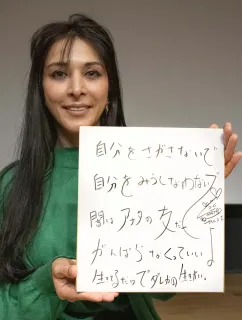 自分をさがさないで
自分をみうしなわないで
闇は アナタの友だち
がんばらなくっていいよ
生きてるだけで 生きたい。